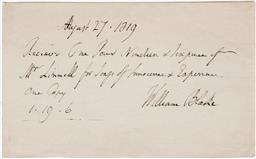 August 27 - 1819
Received One Pound Nineteen & Sixpence of
Mr Linnell for Songs of Innocence & Experience
One Copy
1-19-6
William Blake